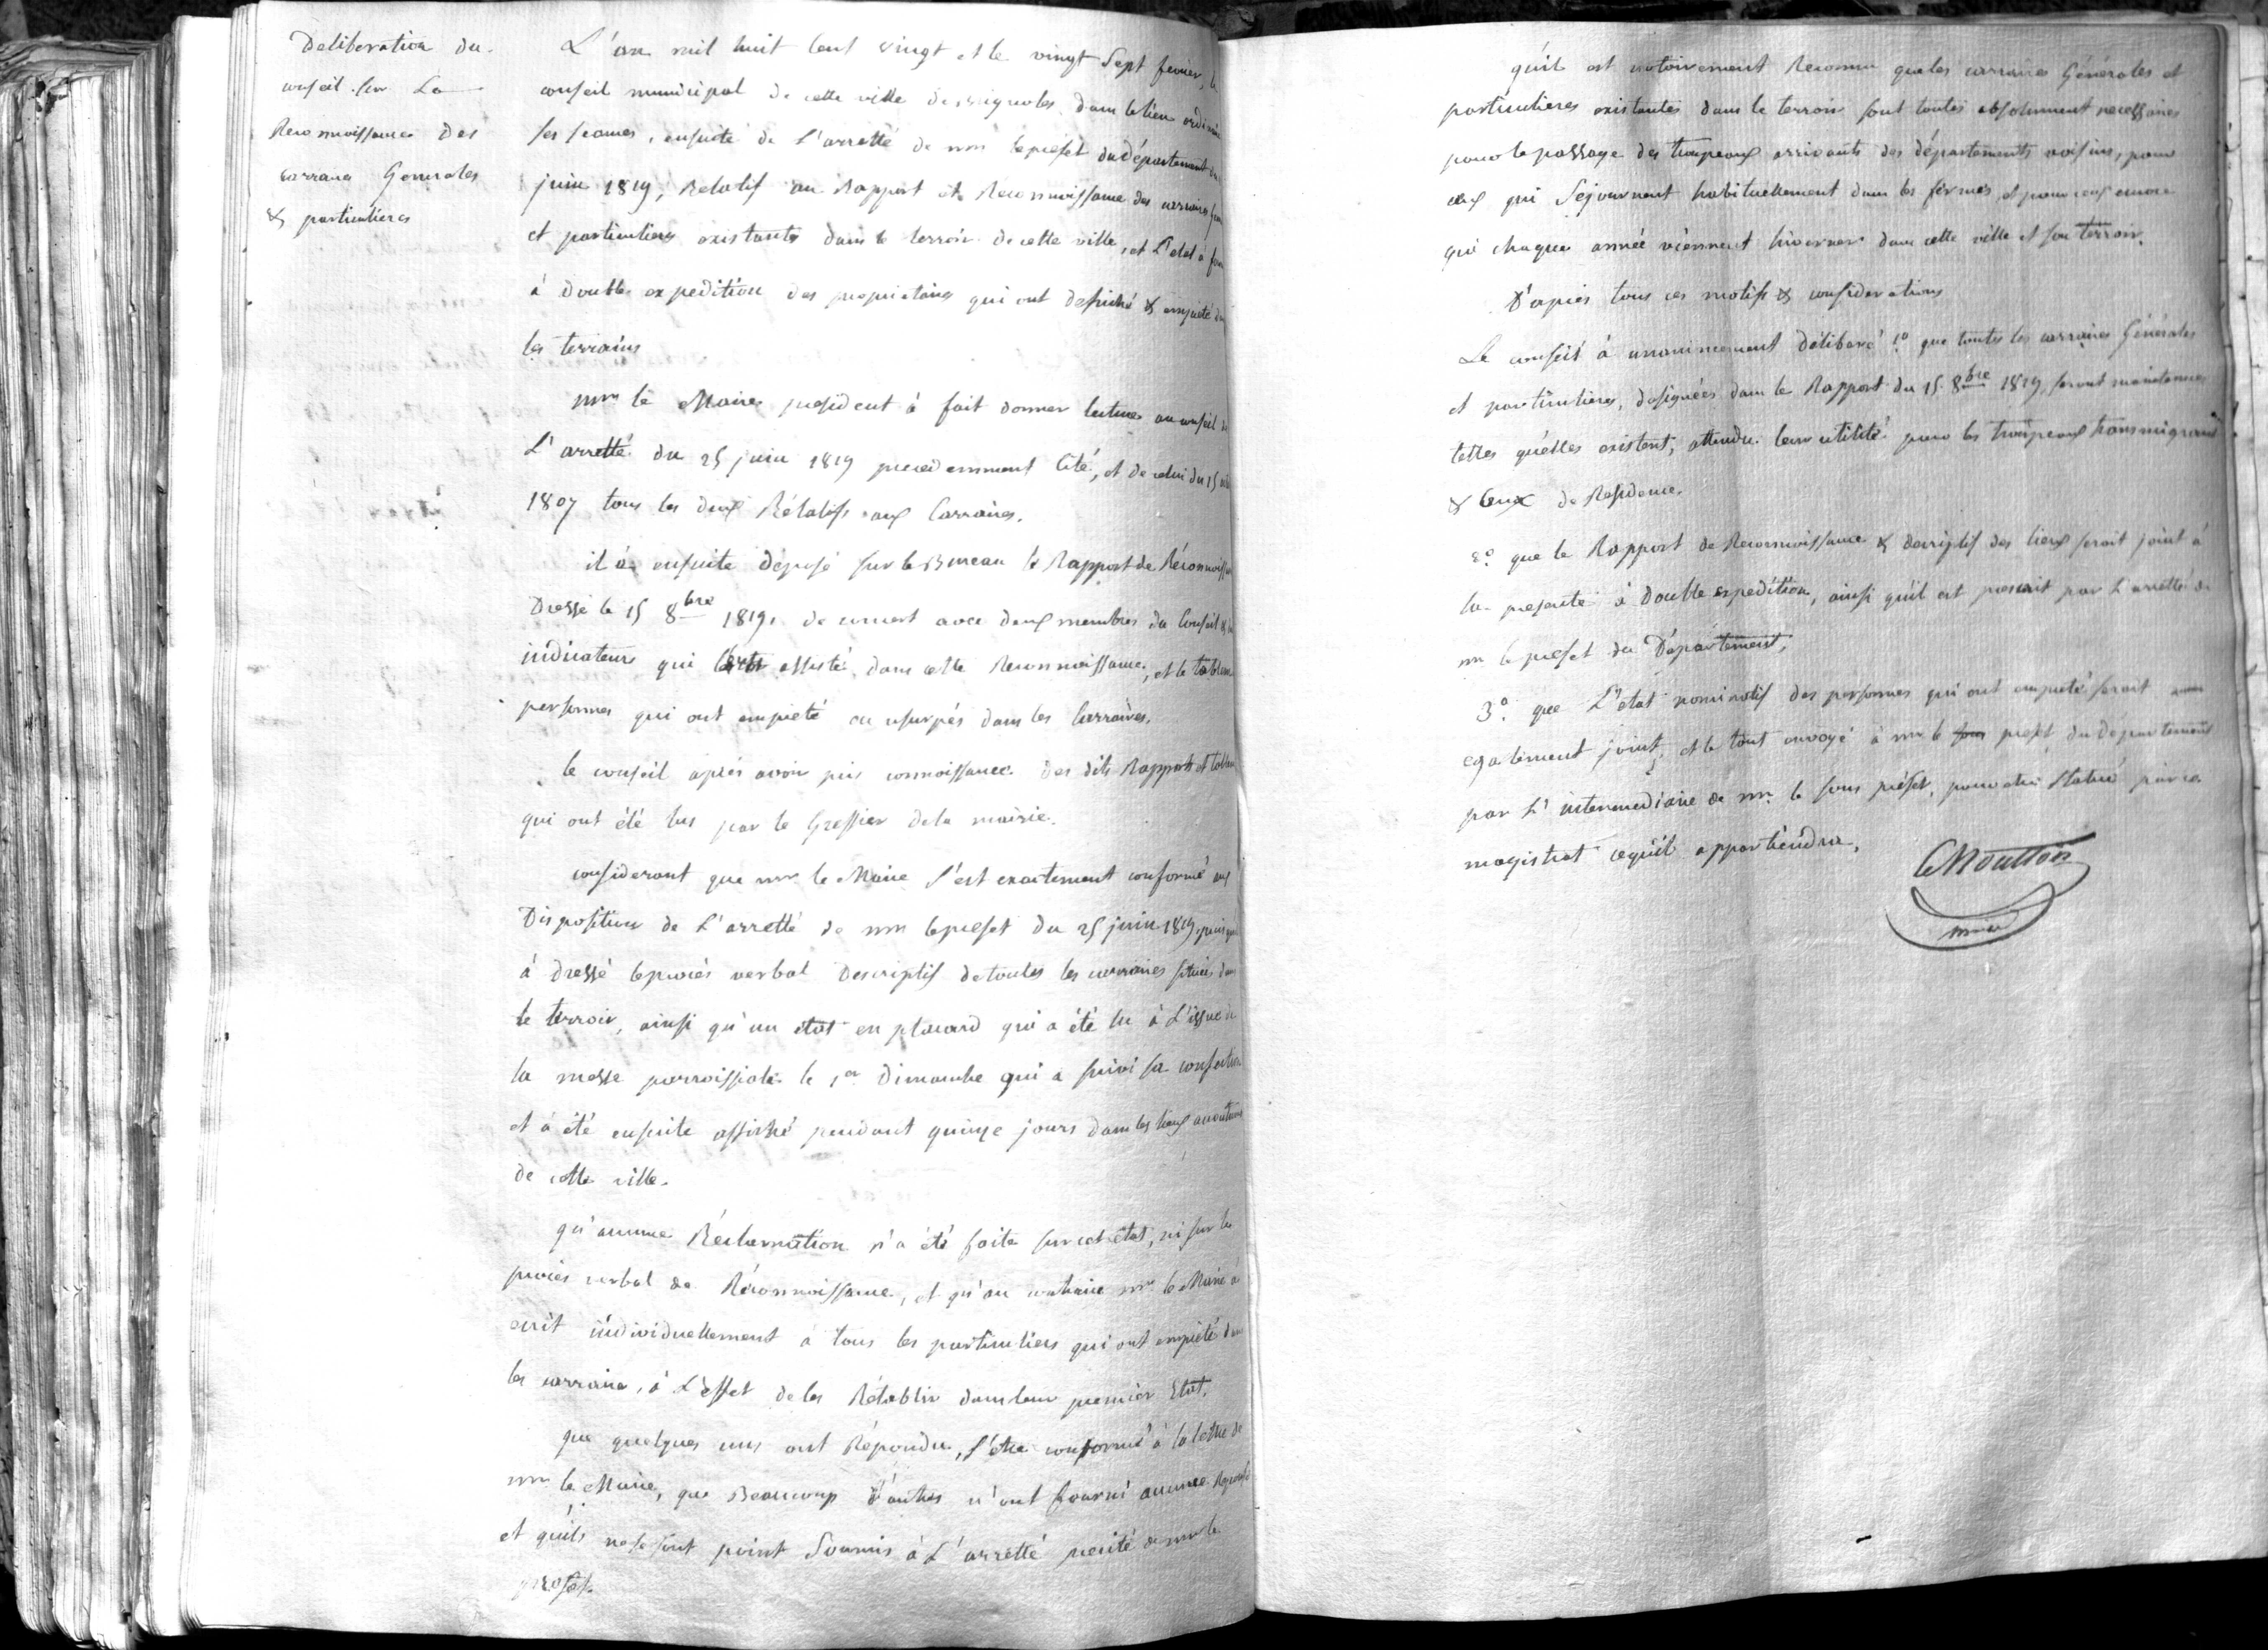 Deliberation du
conseil sur La
Reconnoissance des
carraires Generales
& particulieres
L'an mil huit cent vingt et le vingt Sept fevrier, le
conseil municipal de cette ville de Brignoles dans le lieu ordinaire
ses seances, ensuite de l'arretté de mr le prefet du département du
juin 1819, Relatif au Rapport et Reconnoissance des carraires
et particulieres existants dans le terroir de cette ville, et L'etat à
à double expedition des proprietaires qui ont defriché & empieté
les terrains
mr le Maire president à fait donner lecture au conseil de
L'arretté du 25 juin 1819 precedemment Cité, et de celui du 15
1807 tous les deux Rélatifs aux Carraires.
il à ensuite déposé sur le Bureau le Rapport de Réconnoiss
Dressé le 15 8bre 1819, de concert avec deux membres du Conseil &
indicateurs qui assisté dans cette Reconnoissance, et le tableau
personnes qui ont empieté ou usurpés dans les Carraires.
le conseil aprés avoir pris connoissance des dits Rapports et tableau
qui ont été lus par le Greffier de la mairie.
considerant que mr le Maire s'est exactement conformé aux
Disposition de L'arretté de mr le prefet du 25 juin 1819, puisqu'il
à dressé le procés verbal Descriptif de toutes les carraires situées dans
le terroir, ainsi qu'un état en placard qui a été lu à L'issue de
la messe parroissiale le 1er Dimanche qui a suivi sa confection
et à été ensuite affiché pendant quinze jours dans les lieux accoutumés
de cette ville.
qu'aucune Réclamation n'a été faite sur cet état, ni sur le
procés verbal de Réconnoissance, et qu'au contraire mr le Maire à
ecrit individuellement à tous les particuliers qui ont empieté dans
les carraires, à L'effet de les Rétablir dans leur premier Etat.
que quelques uns ont Répondu, s'etre conformé à la lettre de
mr le Maire, que Beaucoup d'autres n'ont fourni aucune Reponse
et qu'ils ne se sont point Soumis à L'arretté precité de mr le
prefet.
qu'il est notoirement Reconnu que les carraires Générales et
particulieres existantes dans le terroir sont toutes absolument necessaires
pour le passage des troupeaux arrivants des départements voisins, pour
ceux qui Sejournent habituellement dans les fermes, et pour ceux encore
qui chaque année viennent hiverner dans cette ville et son terroir.
D'aprés tous ces motifs & considerations
Le conseil à unanimement déliberé 1o que toutes les carraires Générales
et particulieres, designées dans le Rapport du 15 8bre 1819, seront maintenues
telles qu'elles existent, attendu leur utilité pour les troupeaux transmigrants
& Ceux de Residence.
2o que le Rapport de Reconnoissance & descriptif des lieux seroit joint à
la presente à double expedition, ainsi qu'il est prescrit par L'arretté de
mr le prefet du Département,
3o que L'etat nominatif des personnes qui ont empieté seroit
egalement joint, et le tout envoyé à mr le sous prefet du département
par L'intermediaire de mr le sous préfet, pour etre Statué par ce
magistrat ce qu'il appartiendra.
Moutton
maire